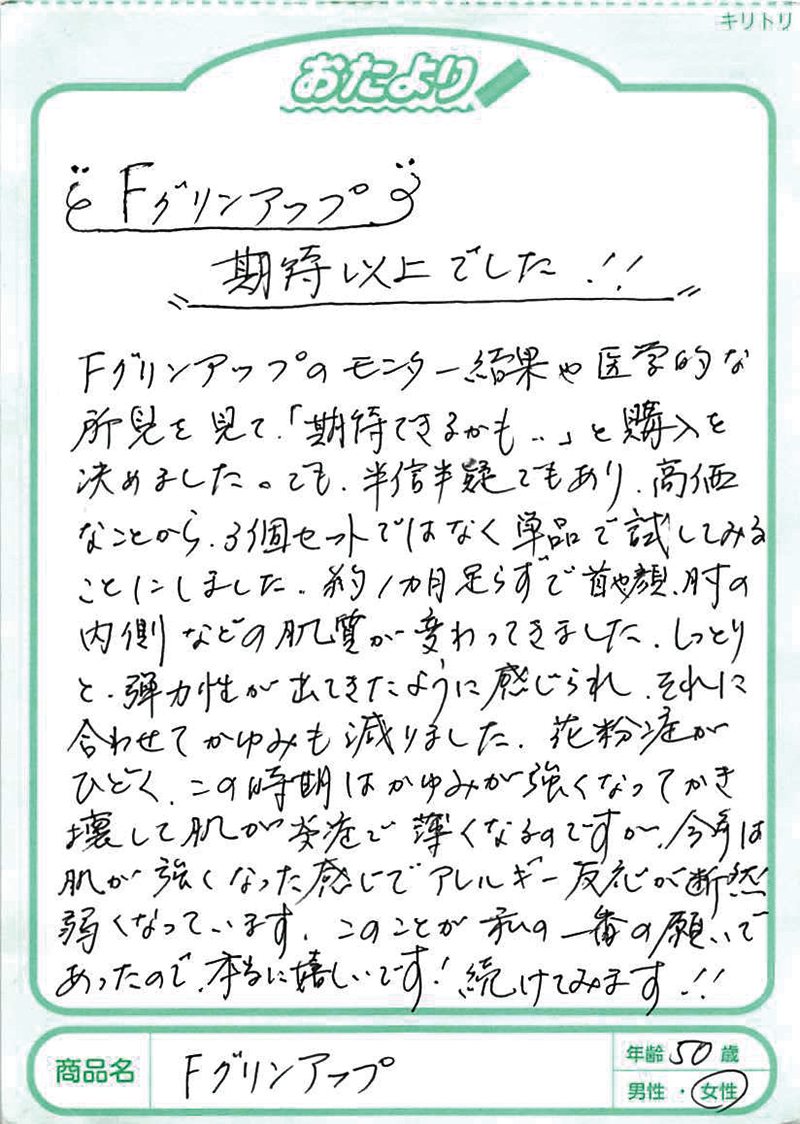 キリトリ
おたより
Fグリンアップ
期待以上でした!!
Fグリンアップのモニター結果や医学的な
所見を見て、「期待できるかも‥」と購入を
決めました。でも、半信半疑でもあり、高価
なことから、3個セットではなく単品で試してみる
ことにしました。約1カ月足らずで首や顔、肘の
内側などの肌質が変わってきました。しっとり
と、弾力性が出てきたように感じられ、それに
合わせてかゆみも減りました。花粉症が
ひどく、この時期はかゆみが強くなってかき
壊して肌が炎症で薄くなるのですが、今年は
肌が強くなった感じでアレルギー反応が断然
弱くなっています。このことが私の一番の願いで
あったので、本当に嬉しいです!続けてみます!!
商品名 Fグリンアップ 年齢50歳
男性・女性